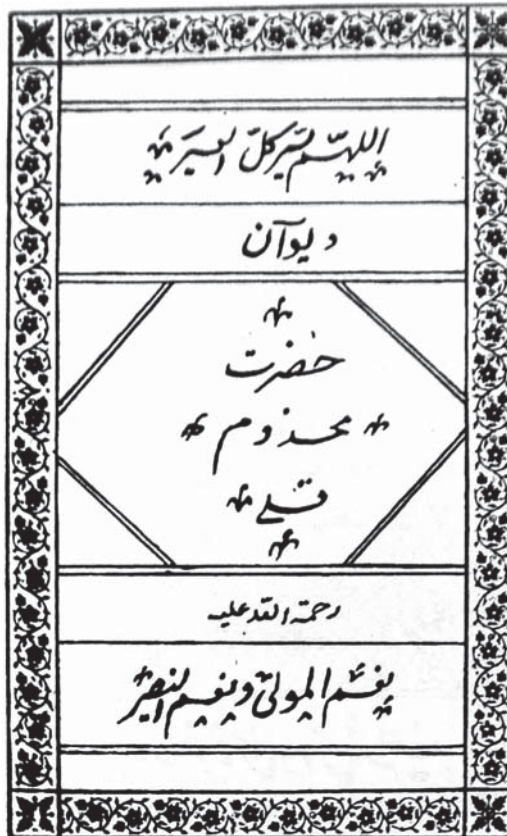 اللهم يسر كل العسير
ديوآن
حضرت
مخذوم
قلے
رحمة الله عليه
نعم المولى ونعم النصير